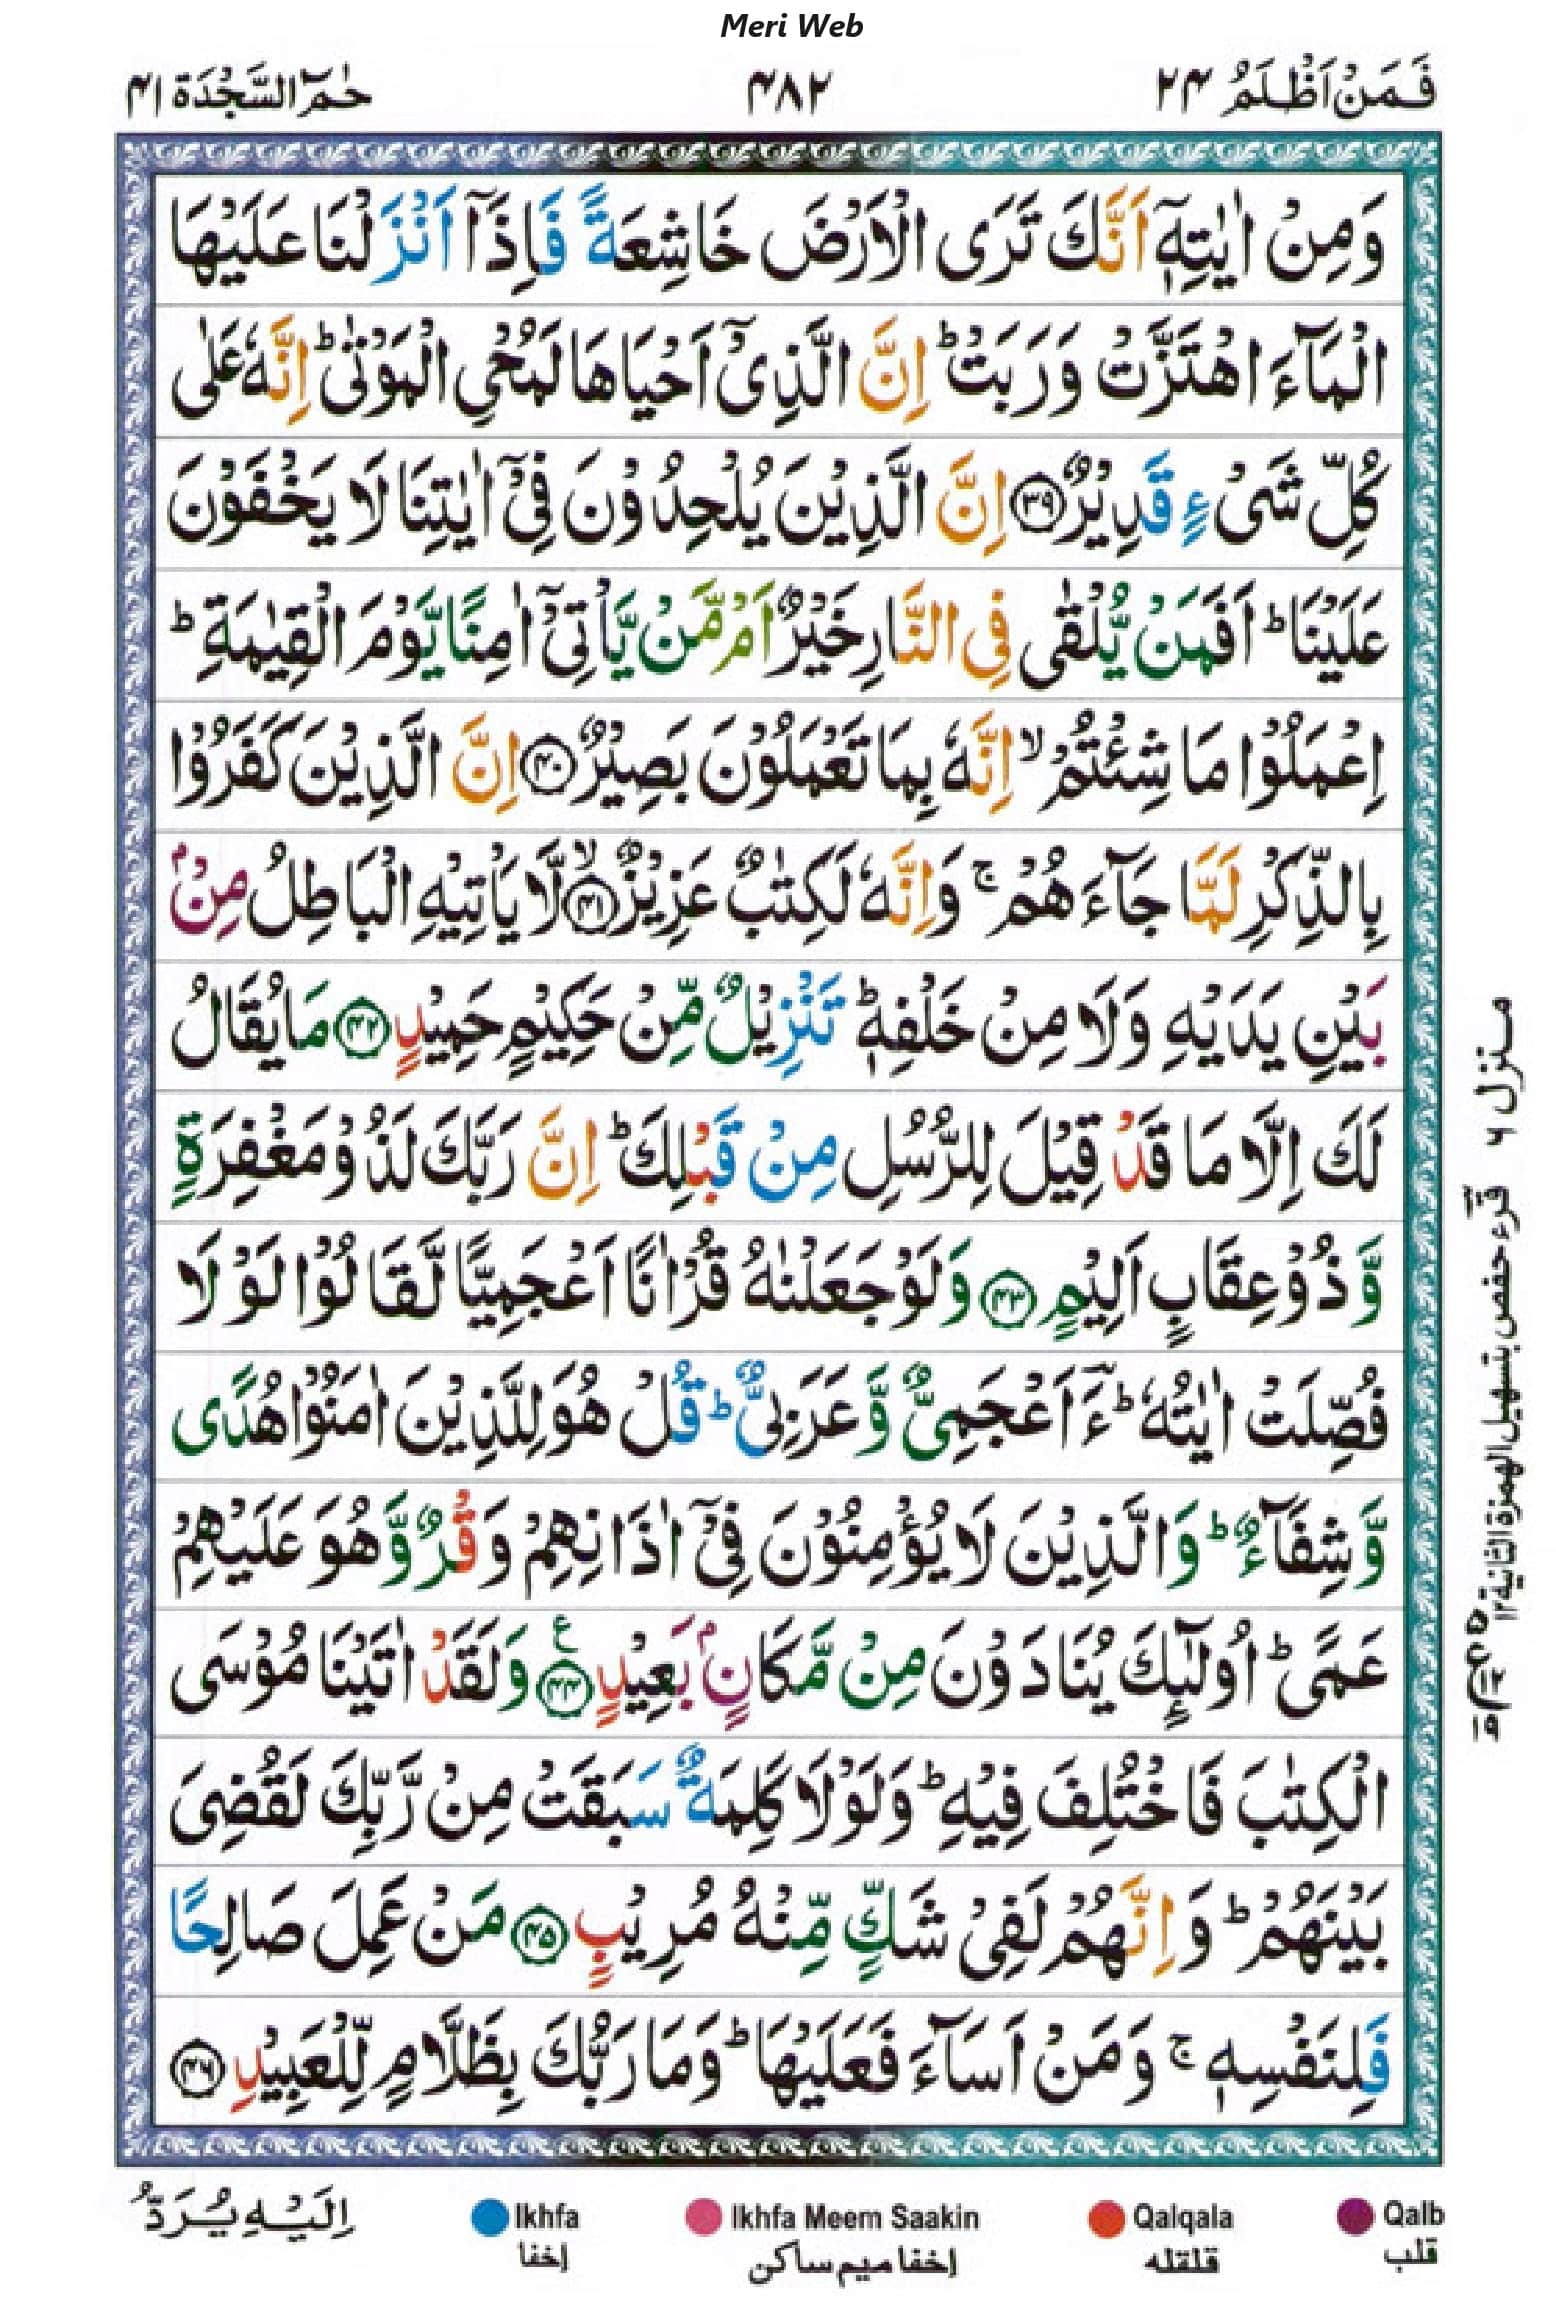 Meri Web
فَمَنْ اَظْلَمُ ۲۴
۴۸۲
حٰمٓ السَّجْدَة ۴۱
وَمِنْ اٰيٰتِهٖٓ اَنَّكَ تَرَى الْاَرْضَ خَاشِعَةً فَاِذَآ اَنْزَلْنَا عَلَيْهَا
الْمَآءَ اهْتَزَّتْ وَرَبَتْ ؕ اِنَّ الَّذِىْٓ اَحْيَاهَا لَمُحْىِ الْمَوْتٰى ؕ اِنَّهٗ عَلٰى
كُلِّ شَىْءٍ قَدِيْرٌ ۳۹ اِنَّ الَّذِيْنَ يُلْحِدُوْنَ فِىْٓ اٰيٰتِنَا لَا يَخْفَوْنَ
عَلَيْنَا ؕ اَفَمَنْ يُّلْقٰى فِى النَّارِ خَيْرٌ اَمْ مَّنْ يَّاْتِىْٓ اٰمِنًا يَّوْمَ الْقِيٰمَةِ ؕ
اِعْمَلُوْا مَا شِئْتُمْ ۙ اِنَّهٗ بِمَا تَعْمَلُوْنَ بَصِيْرٌ ۴۰ اِنَّ الَّذِيْنَ كَفَرُوْا
بِالذِّكْرِ لَمَّا جَآءَهُمْ ۚ وَاِنَّهٗ لَكِتٰبٌ عَزِيْزٌ ۙ ۴۱ لَّا يَاْتِيْهِ الْبَاطِلُ مِنْۢ
بَيْنِ يَدَيْهِ وَلَا مِنْ خَلْفِهٖ ؕ تَنْزِيْلٌ مِّنْ حَكِيْمٍ حَمِيْدٍ ۴۲ مَا يُقَالُ
لَكَ اِلَّا مَا قَدْ قِيْلَ لِلرُّسُلِ مِنْ قَبْلِكَ ؕ اِنَّ رَبَّكَ لَذُوْ مَغْفِرَةٍ
وَّذُوْ عِقَابٍ اَلِيْمٍ ۴۳ وَلَوْ جَعَلْنٰهُ قُرْاٰنًا اَعْجَمِيًّا لَّقَالُوْا لَوْ لَا
فُصِّلَتْ اٰيٰتُهٗ ؕ ءَؔاَعْجَمِىٌّ وَّعَرَبِىٌّ ؕ قُلْ هُوَ لِلَّذِيْنَ اٰمَنُوْا هُدًى
وَّشِفَآءٌ ؕ وَالَّذِيْنَ لَا يُؤْمِنُوْنَ فِىْٓ اٰذَانِهِمْ وَقْرٌ وَّهُوَ عَلَيْهِمْ
عَمًى ؕ اُولٰٓئِكَ يُنَادَوْنَ مِنْ مَّكَانٍۢ بَعِيْدٍ ۴۴ ع وَلَقَدْ اٰتَيْنَا مُوْسَى
الْكِتٰبَ فَاخْتُلِفَ فِيْهِ ؕ وَلَوْلَا كَلِمَةٌ سَبَقَتْ مِنْ رَّبِّكَ لَقُضِىَ
بَيْنَهُمْ ؕ وَاِنَّهُمْ لَفِىْ شَكٍّ مِّنْهُ مُرِيْبٍ ۴۵ مَنْ عَمِلَ صَالِحًا
فَلِنَفْسِهٖ ۚ وَمَنْ اَسَآءَ فَعَلَيْهَا ؕ وَمَا رَبُّكَ بِظَلَّامٍ لِّلْعَبِيْدِ ۴۶
منزل ۶
قرء حفص بتسهيل الهمزة الثانية ۱۲
اِلَيْهِ يُرَدُّ
Ikhfa
اخفا
Ikhfa Meem Saakin
اخفا ميم ساكن
Qalqala
قلقله
Qalb
قلب